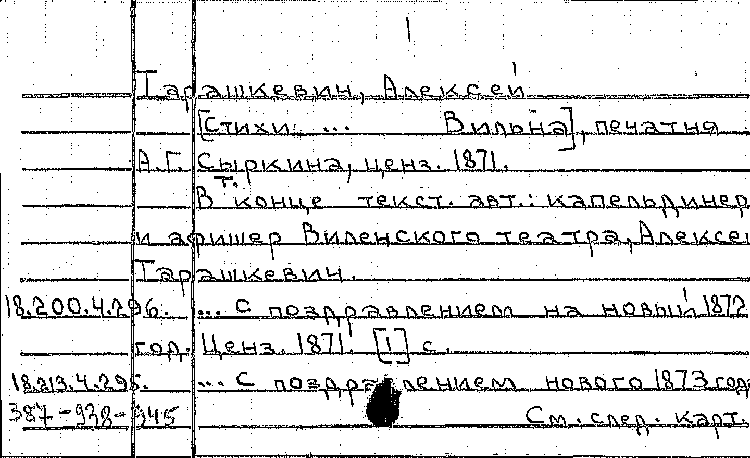 Тарашкевич, Алексей
[Стихи ... Вильна], печатня
А.Г. Сыркина, ценз. 1871.
В конце текст. авт.: капельдинер
и афишер Виленского театра, Алексей
Тарашкевич.
18.200.4.296. ... С поздравлением на новый 1872
год. Ценз. 1871. [1] с.
18.213.4.295. ... С поздравлением нового 1873 год
387-938-945 См. след. карт.